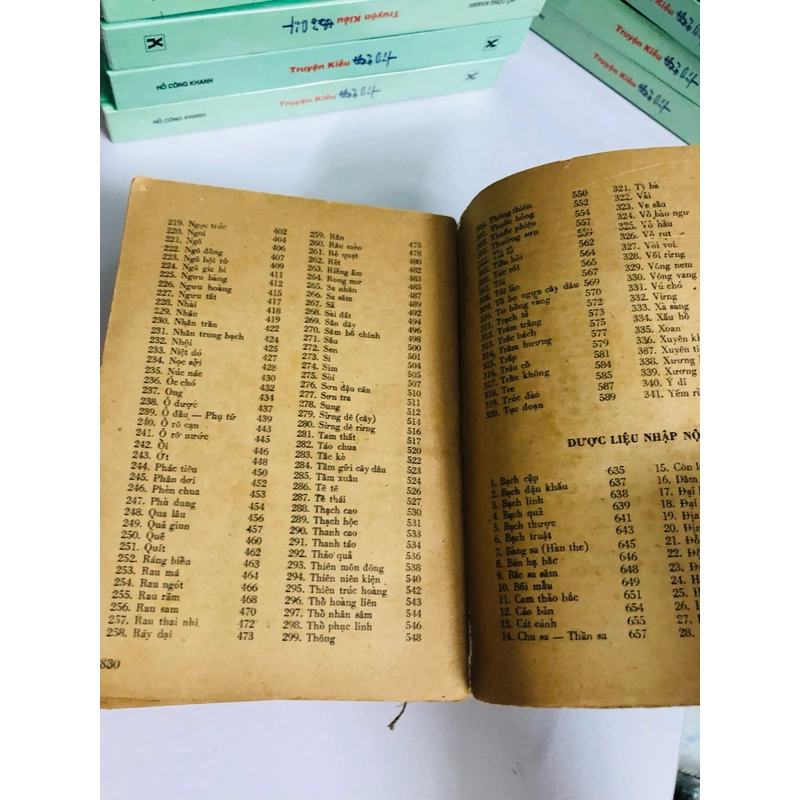 Truyện Kiều
HỒ CÔNG KHANH
Truyện Kiều
HỒ CÔNG KHANH
Truyện Kiều
HỒ CÔNG KHANH
219. Ngọc trúc 402
220. Ngoi 404
221. Ngô 406
222. Ngô đồng 407
223. Ngũ bội tử 409
224. Ngũ gia bì 411
225. Ngưu bàng 412
226. Ngưu hoàng 415
227. Ngưu tất 417
228. Nhài 418
229. Nhãn 419
230. Nhân trần 422
231. Nhân trung bạch 424
232. Nhội 425
233. Niệt dó 427
234. Nọc sởi 428
235. Núc nác 430
236. Óc chó 432
237. Ong 434
238. Ô dược 437
239. Ô đầu — Phụ tử 439
240. Ô rô cạn 443
241. Ô rô nước 445
242. Ổi 446
243. Ớt 448
244. Phác tiêu 450
245. Phân dơi 452
246. Phèn chua 453
247. Phù dung 454
248. Qua lâu 456
249. Quả giun 457
250. Quế 460
251. Quít 462
252. Ráng biển 463
253. Rau má 464
254. Rau ngót 466
255. Rau răm 468
256. Rau sam 470
257. Rau thai nhi 472
258. Ráy dại 473
830
259. Rắn 475
260. Râu mèo 478
261. Rẻ quạt 480
262. Rết 482
263. Riềng ấm 483
264. Rong mơ 485
265. Sa nhân 487
266. Sa sâm 489
267. Sả 492
268. Sài đất 494
269. Sắn dây 496
270. Sâm bố chính 498
271. Sấu 500
272. Sen 502
273. Si 505
274. Sim 505
275. Sòi 507
276. Sơn đậu căn 510
277. Sơn tra 511
278. Sung 512
279. Sừng dê (cây) 514
280. Sừng dê rừng 515
281. Tam thất 517
282. Táo chua 520
283. Tắc kè 522
284. Tầm gửi cây dâu 523
285. Tầm xuân 524
286. Tê tê 526
287. Tề thái 527
288. Thạch cao 530
289. Thạch hộc 531
290. Thanh cao 533
291. Thanh táo 534
292. Thảo quả 536
293. Thiên môn đông 538
294. Thiên niên kiện 540
295. Thiên trúc hoàng 542
296. Thổ hoàng liên 543
297. Thổ nhân sâm 544
298. Thổ phục linh 546
299. Thông 548
Thông thiên 550
Thuốc bỏng 552
Thuốc phiện 554
Thường sơn 557
559
Tiểu hồi 562
Tỏi 567
Tơ hồng vàng 570
311. Trạch tả 572
312. Trám trắng 573
313. Trắc bách 575
314. Trầm hương 577
315. Trấp 579
316. Trẩu cỗ 581
317. Trầu không 584
318. Tre 585
319. Trúc đào 587
320. Tục đoạn 589
321. Tỳ bà
322. Vải
323. Ve sầu
324. Võ bảo ngư
325. Vỏ hầu
326. Vỏ rụt
327. Vòi voi
328. Vối rừng
329. Vông nem
330. Vú chó
332. Vừng
333. Xà sàng
334. Xấu hổ
335. Xoan
338. Xương
339. Xương
340. Ý dĩ
DƯỢC LIỆU NHẬP NỘ
1. Bạch cập 635
2. Bạch đậu khấu 637
3. Bạch linh 638
4. Bạch quả 639
5. Bạch thược 641
6. Bạch truật 643
7. Bàng sa (Hàn the) 645
8. Bán hạ bắc 646
9. Bắc sa sâm 648
10. Bối mẫu 649
11. Cam thảo bắc 651
12. Cảo bản 654
13. Cát cánh 655
14. Chu sa — Thần sa 657
16. Dâm
17. Đại
18. Đại
19. Địa